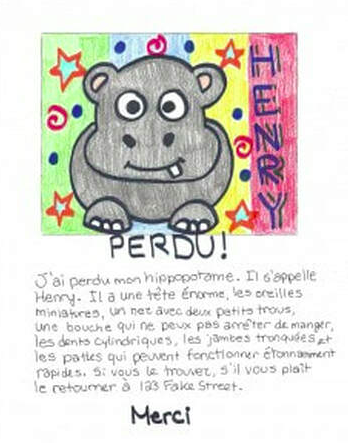 HENRY
PERDU!
J'ai perdu mon hippopotame. Il s'appelle
Henry. Il a une tête énorme, les oreilles
miniatures, un nez avec deux petits trous,
une bouche qui ne peux pas arrêter de manger,
les dents cylindriques, les jambes tronquées et
les pattes qui peuvent fonctionner étonnamment
rapides. Si vous le trouvez, s'il vous plaît
le retourner à 123 Fake Street.
Merci